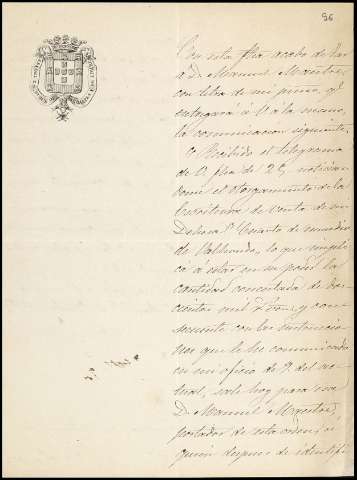 96
Con esta fha acabo de
a D. Manuel Maestre,
con letra de mi puño, y
entregará á V. á la mano,
la comunicacion siguiente.
Recibido el telegrama
de V. fha de 25, noticián
dome el otorgamiento de la
Escritura de venta de mi
Dehesa Cuarto de enmedio
de Valhondo, lo que
ca á estar en su poder la
cantidad concertada de dos
cientos mil y con
secuente con las instruccio
nes que le he comunicado
en mi oficio de 9 del ac
tual, sale hoy para esa
D. Manuel Maestre,
portador de esta orden, á
quien despues de identifi